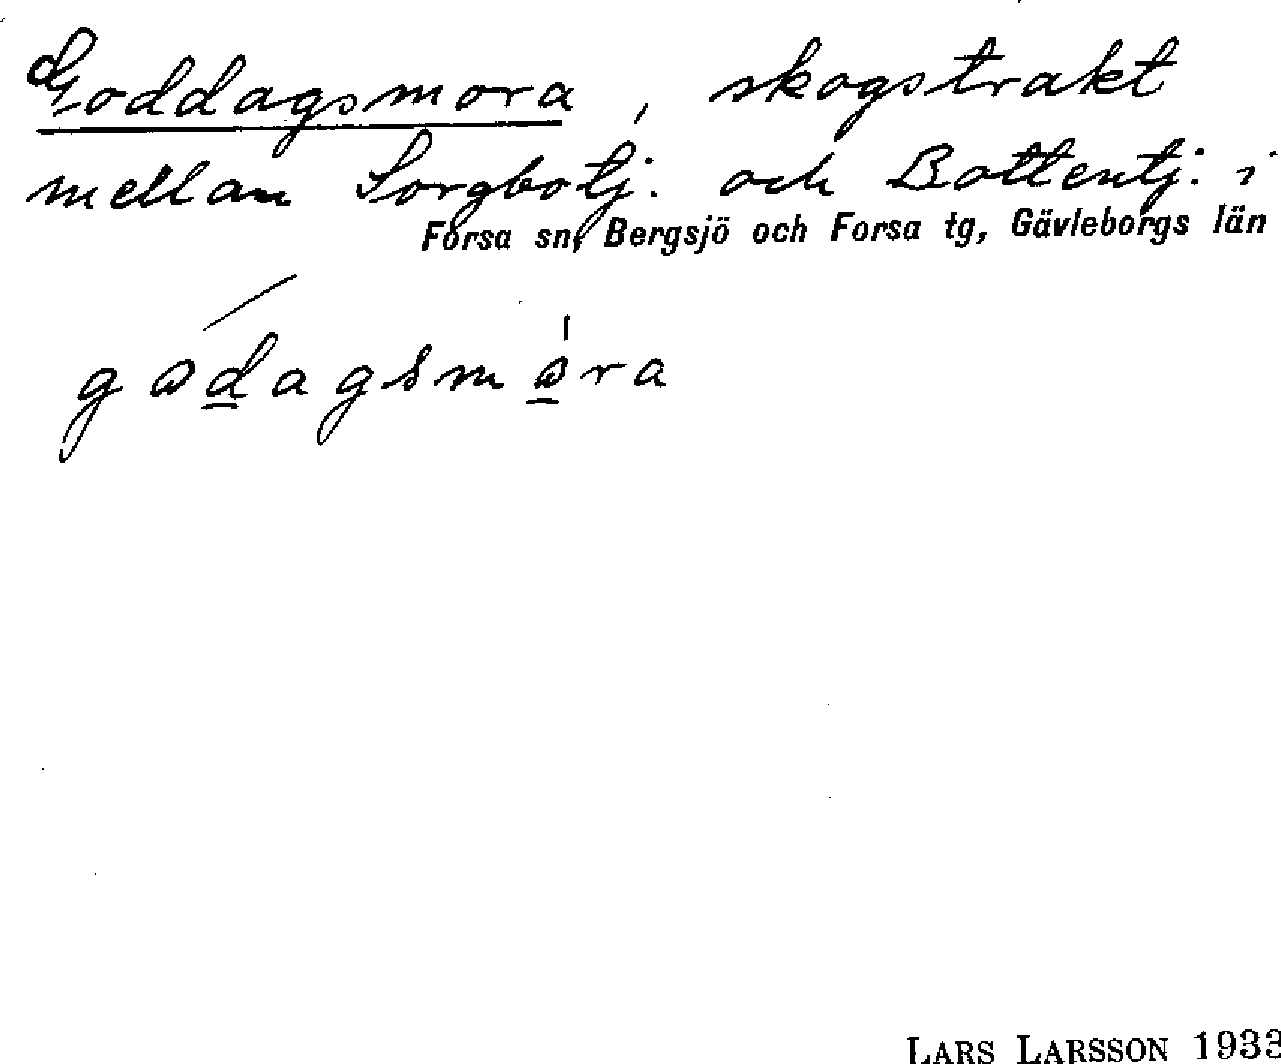 Goddagsmora, skogstrakt
mellan Sorgbotj. och Bottentj. i
Forsa sn, Bergsjö och Forsa tg, Gävleborgs län
gωdagsmωra
LARS LARSSON 1933